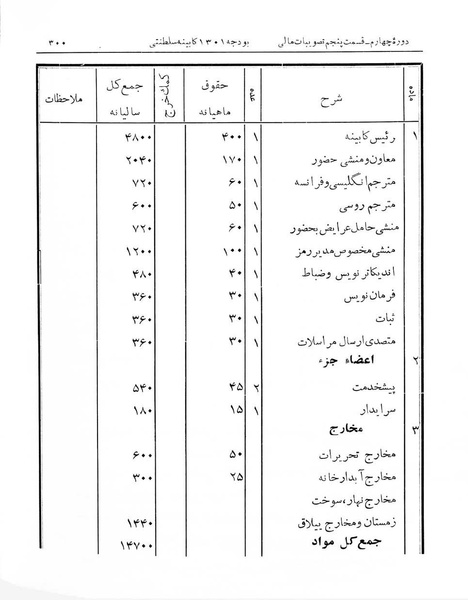 دورهٔ چهارم-قسمت پنجم تصویبات مالی بودجه ۱۳۰۱ کابینه سلطنتی ۳۰۰
ماده شرح عده حقوق ماهیانه کمک خرج جمع کل سالیانه ملاحظات
۱ رئیس کابینه ۱ ۴۰۰ ۴۸۰۰
معاون و منشی حضور ۱ ۱۷۰ ۲۰۴۰
مترجم انگلیسی و فرانسه ۱ ۶۰ ۷۲۰
مترجم روسی ۱ ۵۰ ۶۰۰
منشی حامل عرایض بحضور ۱ ۶۰ ۷۲۰
منشی مخصوص مدیر رمز ۱ ۱۰۰ ۱۲۰۰
اندیکاتر نویس و ضباط ۱ ۴۰ ۴۸۰
فرمان نویس ۱ ۳۰ ۳۶۰
ثبات ۱ ۳۰ ۳۶۰
متصدی ارسال مراسلات ۱ ۳۰ ۳۶۰
۲ اعضاء جزء
پیشخدمت ۲ ۴۵ ۵۴۰
سرایدار ۱ ۱۵ ۱۸۰
۳ مخارج
مخارج تحریرات ۵۰ ۶۰۰
مخارج آبدارخانه ۲۵ ۳۰۰
مخارج نهار، سوخت
زمستان و مخارج ییلاق ۱۴۴۰
جمع کل مواد ۱۴۷۰۰